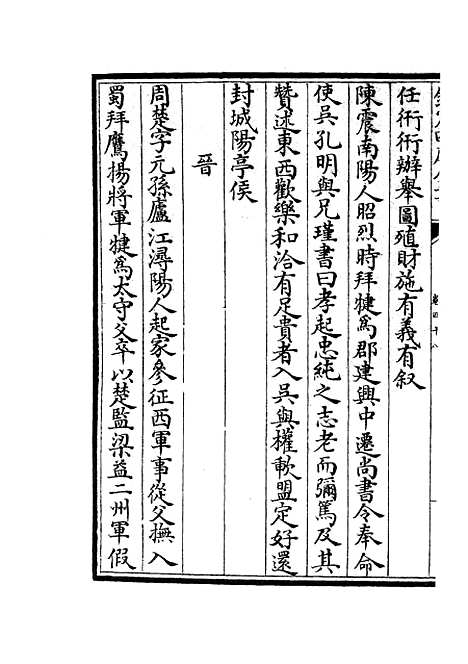 任術術辦舉圖殖財施有義有叙
陳震南陽人昭烈時拜犍為郡建興中遷尚書令奉命
使吳孔明與兄瑾書曰孝起忠純之志老而彌篤及其
贊述東西歡樂和洽有足貴者入吳與權歃盟定好還
封城陽亭侯
晉
周楚字元孫廬江潯陽人起家參征西軍事從父撫入
蜀拜鷹揚將軍犍為太守父卒以楚監梁益二州軍假